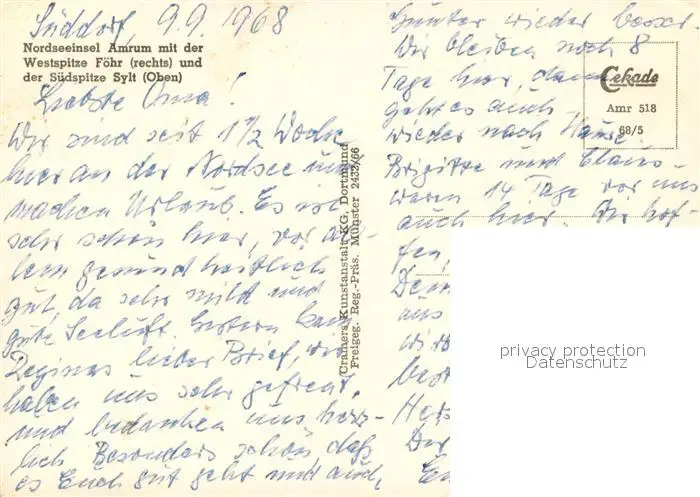 Süddorf, 9.9.1968
Nordseeinsel Amrum mit der
Westspitze Föhr (rechts) und
der Südspitze Sylt (Oben)
Liebste Oma!
Wir sind seit 1 1/2 Woche
hier an der Nordsee und
machen Urlaub. Es ist
sehr schön hier, vor al-
lem gesundheitlich
gut, da sehr mild und
gute Seeluft. Gestern kam
Reginas lieber Brief, wir
haben uns sehr gefreut
und bedanken uns herz-
lich. Besonders schön, daß
es Euch gut geht und auch,
Cramers Kunstanstalt KG, Dortmund
Freigeg. Reg.-Präs. Münster 2432/66
Günter wieder besser.
Wir bleiben noch 8
Tage hier, dann
geht es auch
wieder nach Hause.
Brigitte und Claus
waren 14 Tage vor uns
auch hier. Wir hof-
fen,
aus
Cekade
Amr 518
68/5
privacy protection
Datenschutz